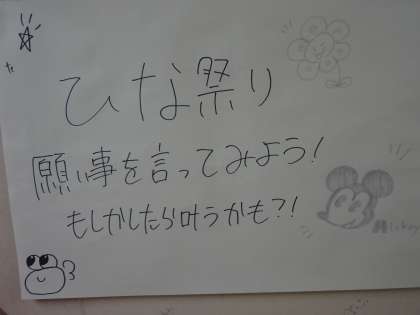 ひな祭り
願い事を言ってみよう!
もしかしたら叶うかも?!
Mickey